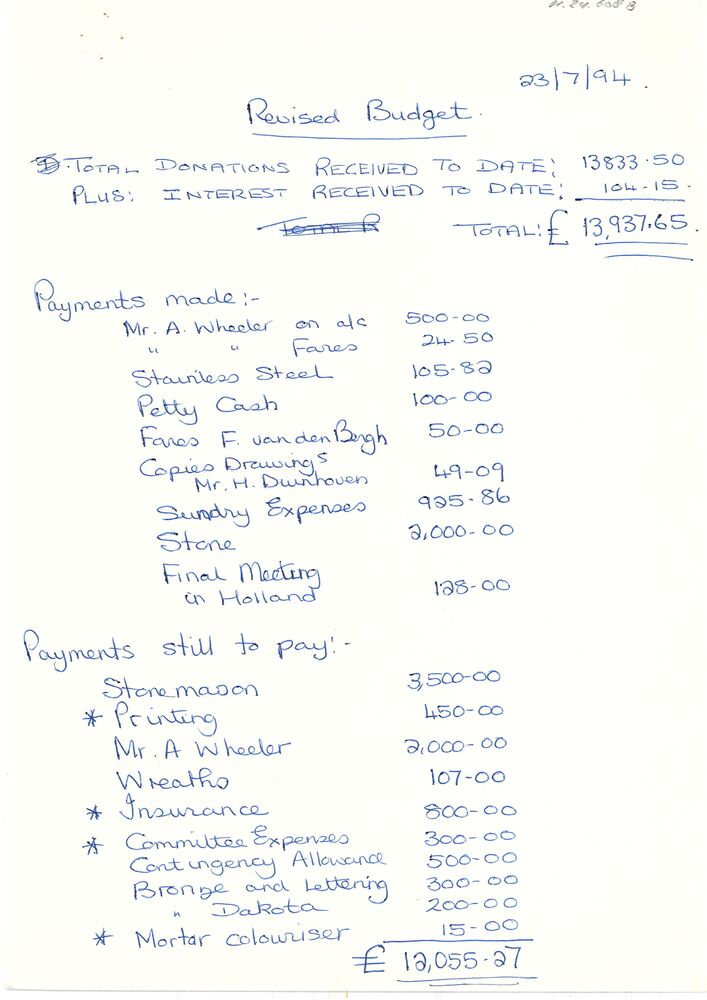 23/7/94.
Revised Budget.
TOTAL DONATIONS RECEIVED TO DATE: 13833.50
PLUS: INTEREST RECEIVED TO DATE: 104-15.
TOTAL: £ 13,937.65.
Payments made:-
Mr. A. Wheeler on a/c 500-00
" " Fares 24-50
Stainless Steel 105-82
Petty Cash 100-00
Fares F. van den Bergh 50-00
Copies Drawings
Mr. H. Duinhoven 49-09
Sundry Expenses 925-86
Stone 2,000-00
Final Meeting
in Holland 128-00
Payments still to pay:-
Stonemason 3,500-00
* Printing 450-00
Mr. A Wheeler 2,000-00
Wreaths 107-00
* Insurance 800-00
* Committee Expenses 300-00
Contingency Allowance 500-00
Bronze and Lettering 300-00
" Dakota 200-00
* Mortar colouriser 15-00
£ 12,055-27